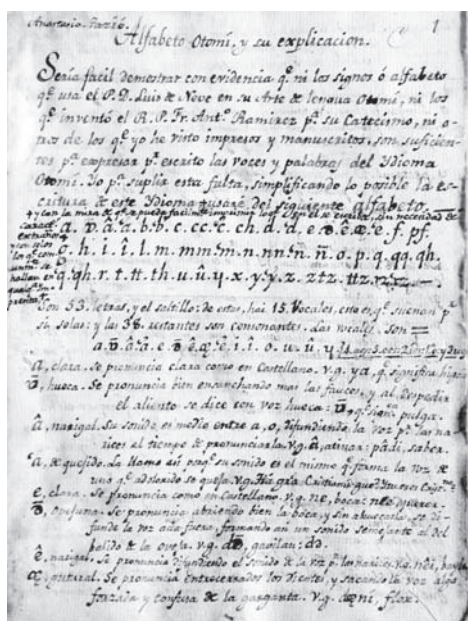 1
Alfabeto Otomí, y su explicacion.
Sería facil demostrar con evidencia q.e ni los signos ó alfabeto
q.e usa el P. D. Luis de Neve en su Arte de lengua Otomí, ni los
q.e inventó el R. P. Fr. Ant.o Ramirez p.a su Catecismo, ni o-
tros de los q.e yo he visto impresos y manuscritos, son suficien-
tes p.a expresar p.r escrito las voces y palabras del Ydioma
Otomí. Yo p.a suplir esta falta, simplificando lo posible la es-
critura de este Ydioma usaré del siguiente alfabeto
y con la mira de q.e se pueda facilm.te imprimir sin necesidad de
caract.s
extraños
g. h. i. î. l. m. mm. m. n. nn. n. ñ. o. p. q. qq. qh.
q. qh. r. t. tt. th. u. û. y. x. z. tz.
Son 53. letras, y el saltillo: de estas, hai 15. Vocales, esto es, q.e suenan p.r
si solas: y las 38. restantes son consonantes. Las vocales son =
a, clara. Se pronuncia clara como en Castellano. v.g. ya, q.e significa
hueca. Se pronuncia bien ensanchando mas las fauces, y al despedir
el aliento se dice con voz hueca: pulga.
â, narigal. Su sonido es medio entre a, o, difundiendo la voz p.r las na-
rices al tiempo de pronunciarla. v.g. â, ativar: pâdi, saber.
'a, de quejido. La llamo asi porq.e su sonido es el mismo q.e forma la voz de
uno q.e adolorido se queja. v.g.
e, clara. Se pronuncia como en Castellano. v.g. ne, boca: nee querer.
Se pronuncia abriendo bien la boca, y sin ahuecarla, se di-
funde la voz ada fuera, formando asi un sonido semejante al del
balido de la oveja. v.g. gavilan:
ê, narigal. Se pronuncia difundiendo el sonido de la voz p.r las narices. v.g.
gutural. Se pronuncia entrecerrados los dientes, y sacando la voz algo
forzada y confusa de la garganta. v.g. flor.